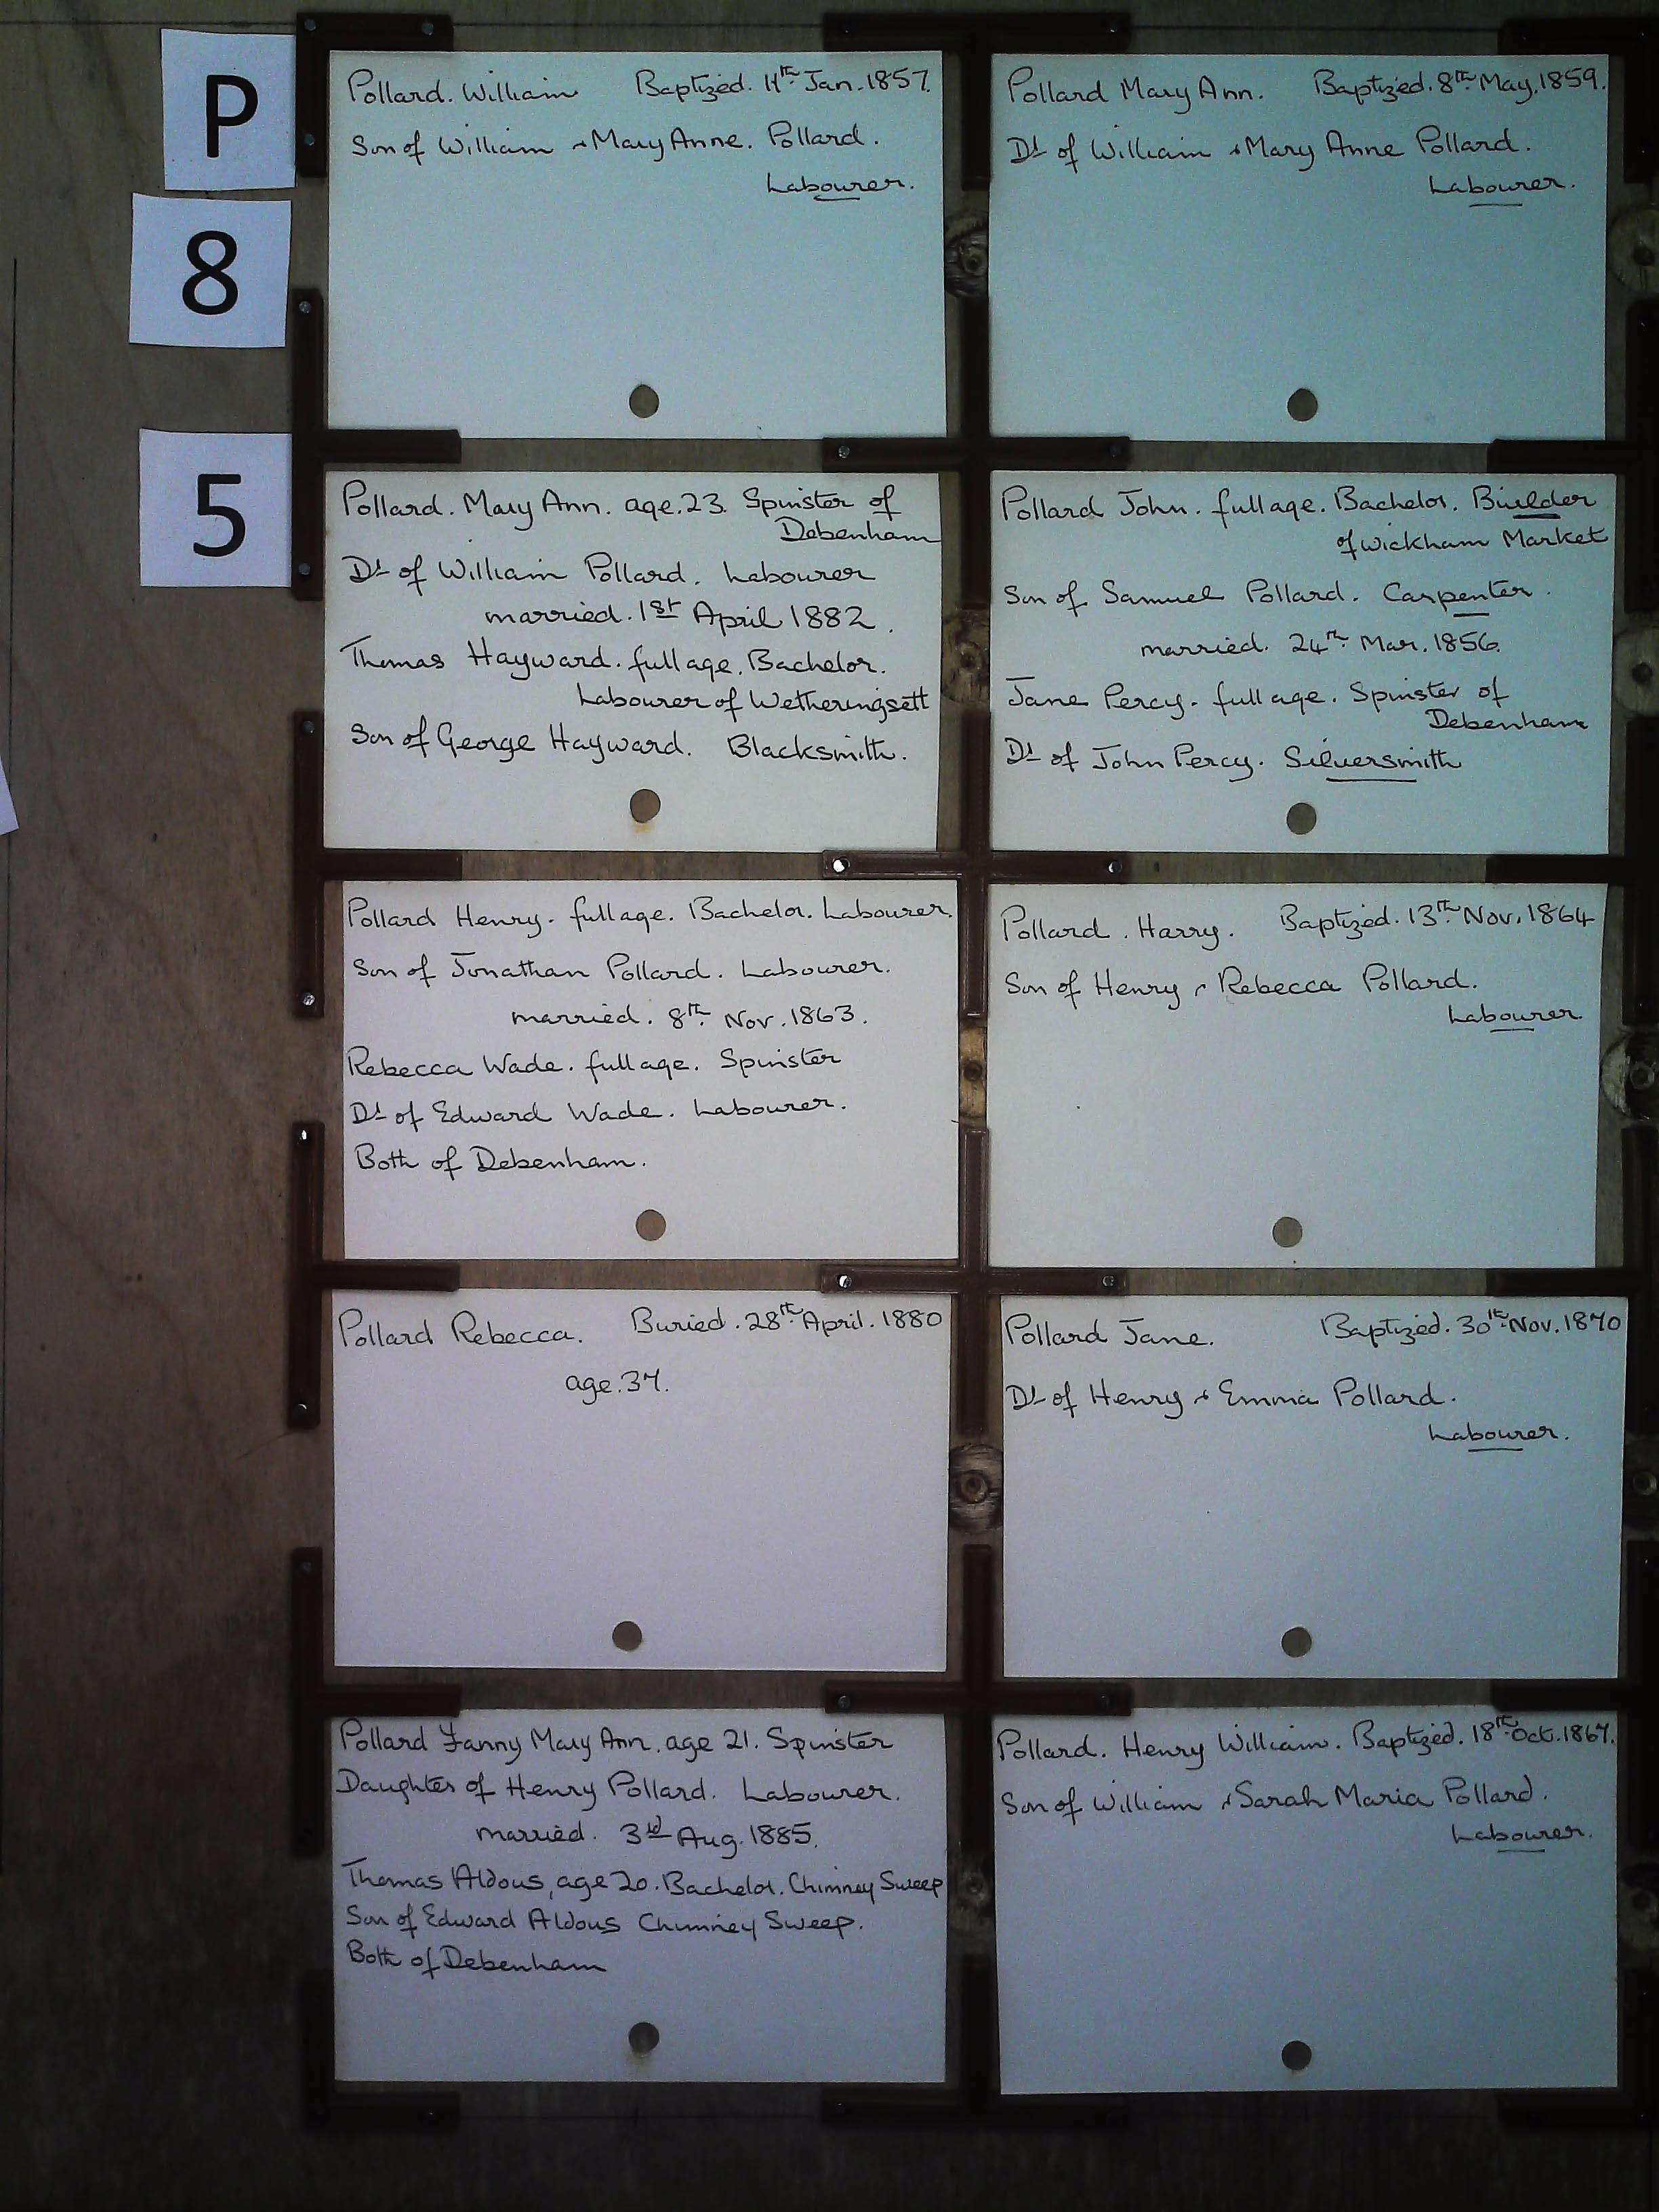 P
8
5
Pollard. William Baptized. 11th Jan. 1857.
Son of William & Mary Anne. Pollard.
Labourer.
Pollard Mary Ann. Baptized. 8th May. 1859.
Dt of William & Mary Anne Pollard.
Labourer.
Pollard. Mary Ann. age. 23. Spinster of
Debenham
Dt of William Pollard. Labourer
married. 1st April 1882.
Thomas Hayward. full age. Bachelor.
Labourer of Wetheringsett
Son of George Hayward. Blacksmith.
Pollard John. full age. Bachelor. Builder
of Wickham Market
Son of Samuel Pollard. Carpenter.
married. 24th Mar. 1856.
Jane Percy. full age. Spinster of
Debenham
Dt of John Percy. Silversmith
Pollard Henry. full age. Bachelor. Labourer.
Son of Jonathan Pollard. Labourer.
married. 8th Nov. 1863.
Rebecca Wade. full age. Spinster
Dt of Edward Wade. Labourer.
Both of Debenham.
Pollard. Harry. Baptized. 13th Nov. 1864
Son of Henry & Rebecca Pollard.
Labourer
Pollard Rebecca. Buried. 28th April. 1880
age. 37.
Pollard Jane. Baptized. 30th Nov. 1870
Dt of Henry & Emma Pollard.
Labourer.
Pollard Fanny Mary Ann. age 21. Spinster
Daughter of Henry Pollard. Labourer.
married. 3rd Aug. 1885.
Thomas Aldous, age 20. Bachelor. Chimney Sweep
Son of Edward Aldous Chimney Sweep.
Both of Debenham
Pollard. Henry William. Baptized. 18th Oct. 1867.
Son of William & Sarah Maria Pollard.
Labourer.